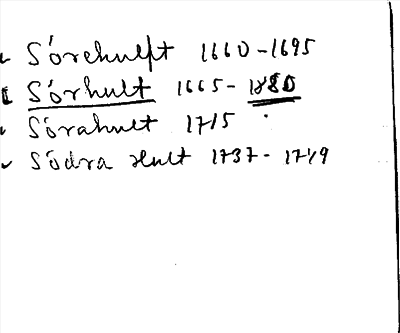 Sörehulft 1660-1695
Sörhult 1665-1880
Sörahult 1715
Södra Hult 1737-1749